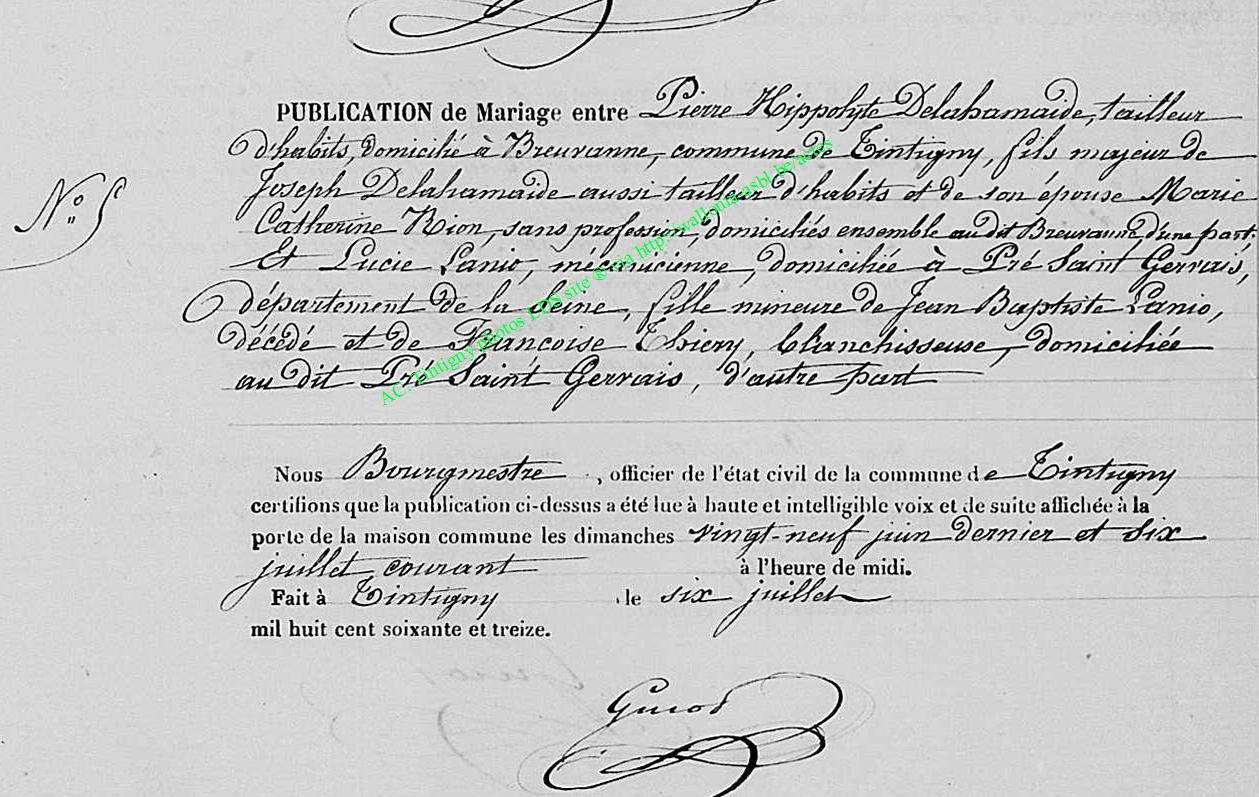 PUBLICATION de Mariage entre Pierre Hippolyte Delahamaide, tailleur
d'habits, domicilié à Breuvanne, commune de Tintigny, fils majeur de
Joseph Delahamaide aussi tailleur d'habits et de son épouse Marie
N° 5
Catherine Rion, sans profession, domiciliés ensemble au dit Breuvanne, d'une part.
Et Lucie Lanio, mécanicienne, domiciliée à Pré Saint Gervais,
département de la Seine, fille mineure de Jean Baptiste Lanio,
décédé et de Françoise Thiery, blanchisseuse, domiciliée
au dit Pré Saint Gervais, d'autre part
AC. Tintigny photos EDN site ® via http://wallonia-asbl.be/actes
Nous Bourgmestre, officier de l'état civil de la commune de Tintigny
certifions que la publication ci-dessus a été lue à haute et intelligible voix et de suite affichée à la
porte de la maison commune les dimanches vingt-neuf juin dernier et six
juillet courant à l'heure de midi.
Fait à Tintigny le six juillet
mil huit cent soixante et treize.